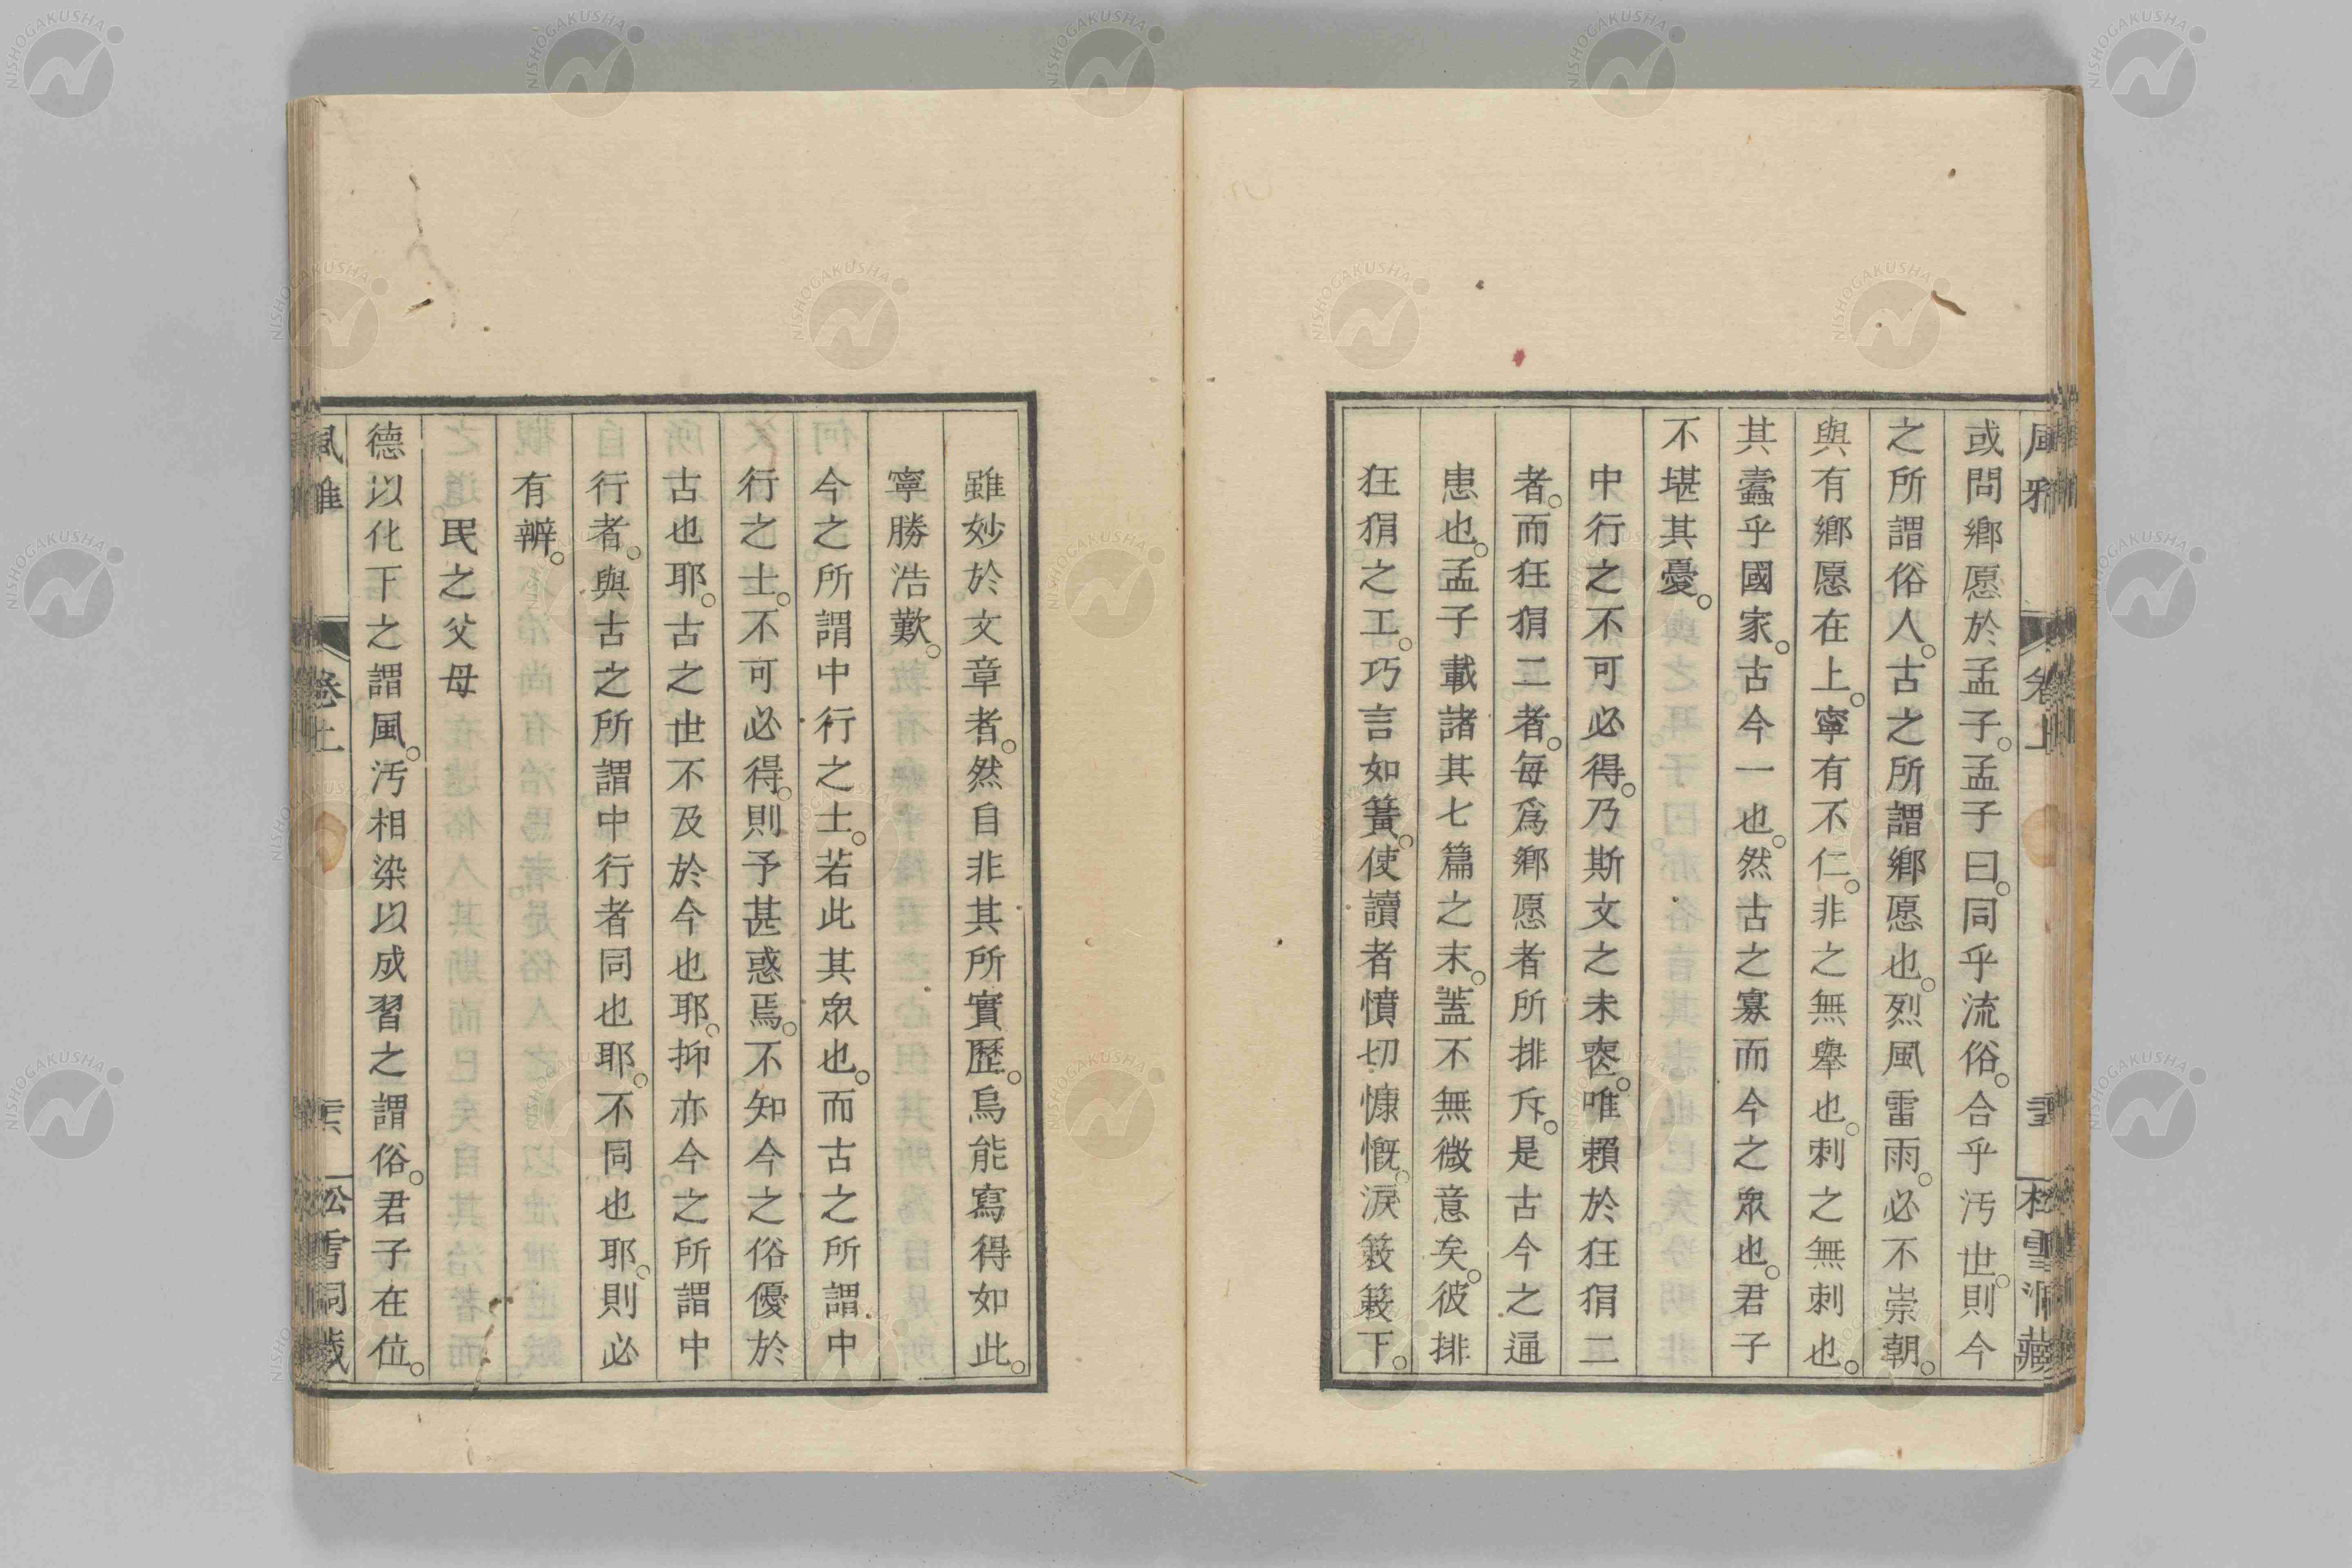 或問鄉愿於孟子。孟子曰。同乎流俗。合乎汚世。則今
之所謂俗人。古之所謂鄉愿也。烈風雷雨。必不崇朝。
與有鄉愿在上。寧有不仁。非之無舉也。刺之無刺也。
其蠹乎國家。古今一也。然古之寡而今之衆也。君子
不堪其憂。
中行之不可必得。乃斯文之未喪。唯賴於狂狷二
者。而狂狷二者。每爲鄉愿者所排斥。是古今之通
患也。孟子載諸其七篇之末。蓋不無微意矣。彼排
狂狷之工。巧言如簧。使讀者憤切慷慨。淚簌簌下。
雖妙於文章者。然自非其所實歷。烏能寫得如此。
寧勝浩歎。
今之所謂中行之士。若此其衆也。而古之所謂中
行之士。不可必得。則予甚惑焉。不知今之俗優於
古也耶。古之世不及於今也耶。抑亦今之所謂中
行者。與古之所謂中行者同也耶。不同也耶。則必
有辨。
民之父母
德以化下之謂風。汚相染以成習之謂俗。君子在位。
卷上
NISHOGAKUSHA